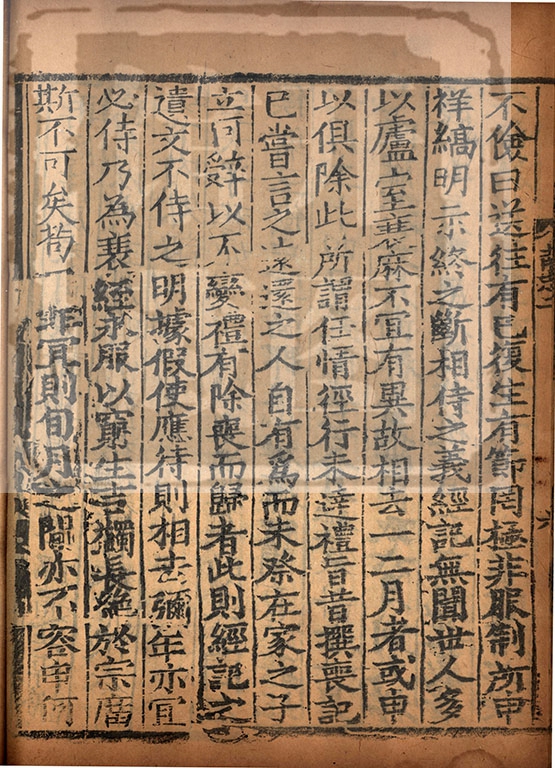 不儉曰送往有已復生有節罔極非服制所申
祥縞明示終之斷相侍之義經記無聞世人多
以廬室衰麻不宜有異故相去一二月者或申
以俱除此所謂任情徑行未達禮旨昔撰喪記
已嘗言之遠還之人自有爲而未祭在家之子
立何辭以不變禮有除喪而歸者此則經記之
遺文不侍之明據假使應待則相去彌年亦宜
必侍乃為衰絰永服以窮生吉獨長絶於宗廣
斯不可矣苟一非宜則旬月之間亦不容申何